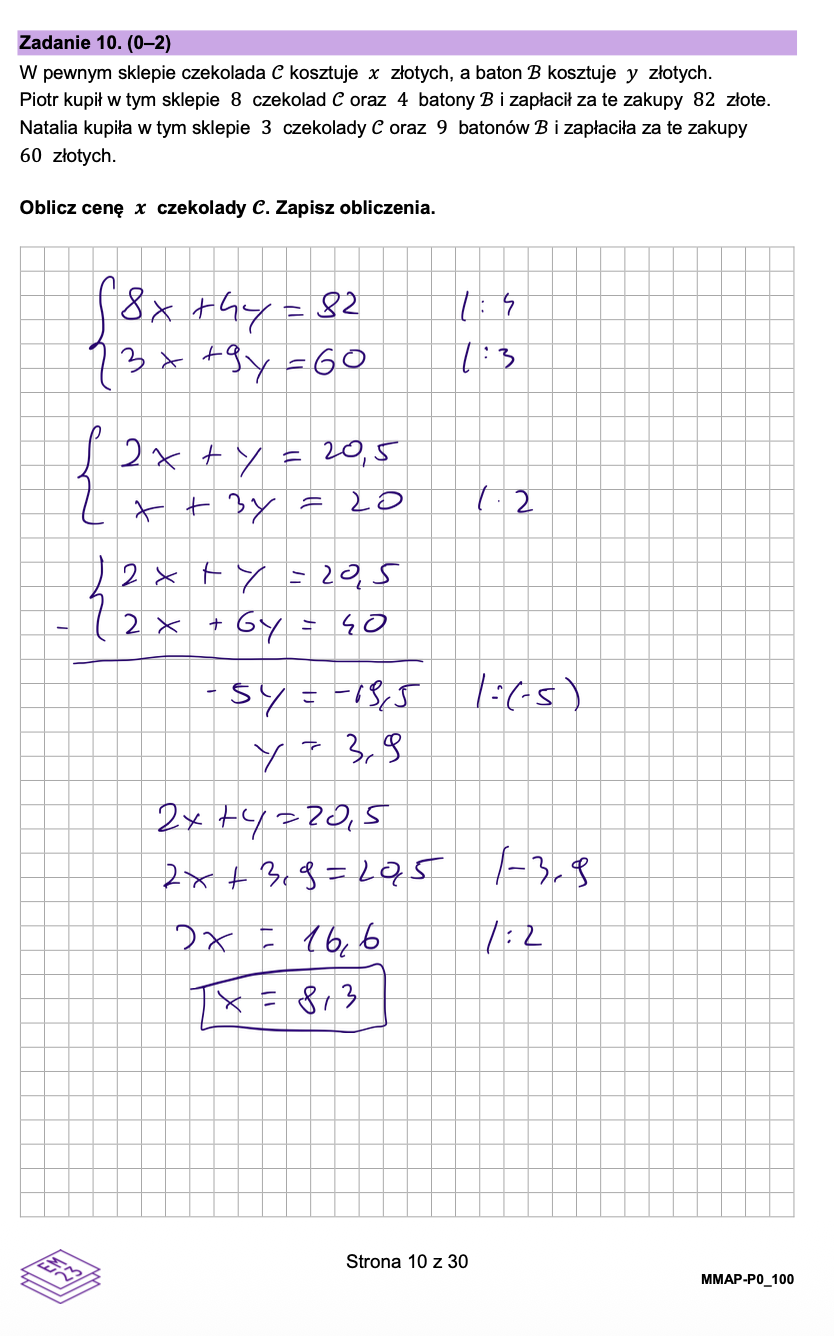 Zadanie 10. (0–2)
W pewnym sklepie czekolada 𝒞 kosztuje x złotych, a baton ℬ kosztuje y złotych.
Piotr kupił w tym sklepie 8 czekolad 𝒞 oraz 4 batony ℬ i zapłacił za te zakupy 82 złote.
Natalia kupiła w tym sklepie 3 czekolady 𝒞 oraz 9 batonów ℬ i zapłaciła za te zakupy
60 złotych.
Oblicz cenę x czekolady 𝒞. Zapisz obliczenia.
{ 8x + 4y = 82 / : 4
3x + 9y = 60 / : 3
{ 2x + y = 20,5
x + 3y = 20 / · 2
{ 2x + y = 20,5
- 2x + 6y = 40
- 5y = -19,5 / : (-5)
y = 3,9
2x + y = 20,5
2x + 3,9 = 20,5 / -3,9
2x = 16,6 / : 2
x = 8,3
EM
23
Strona 10 z 30
MMAP-P0_100